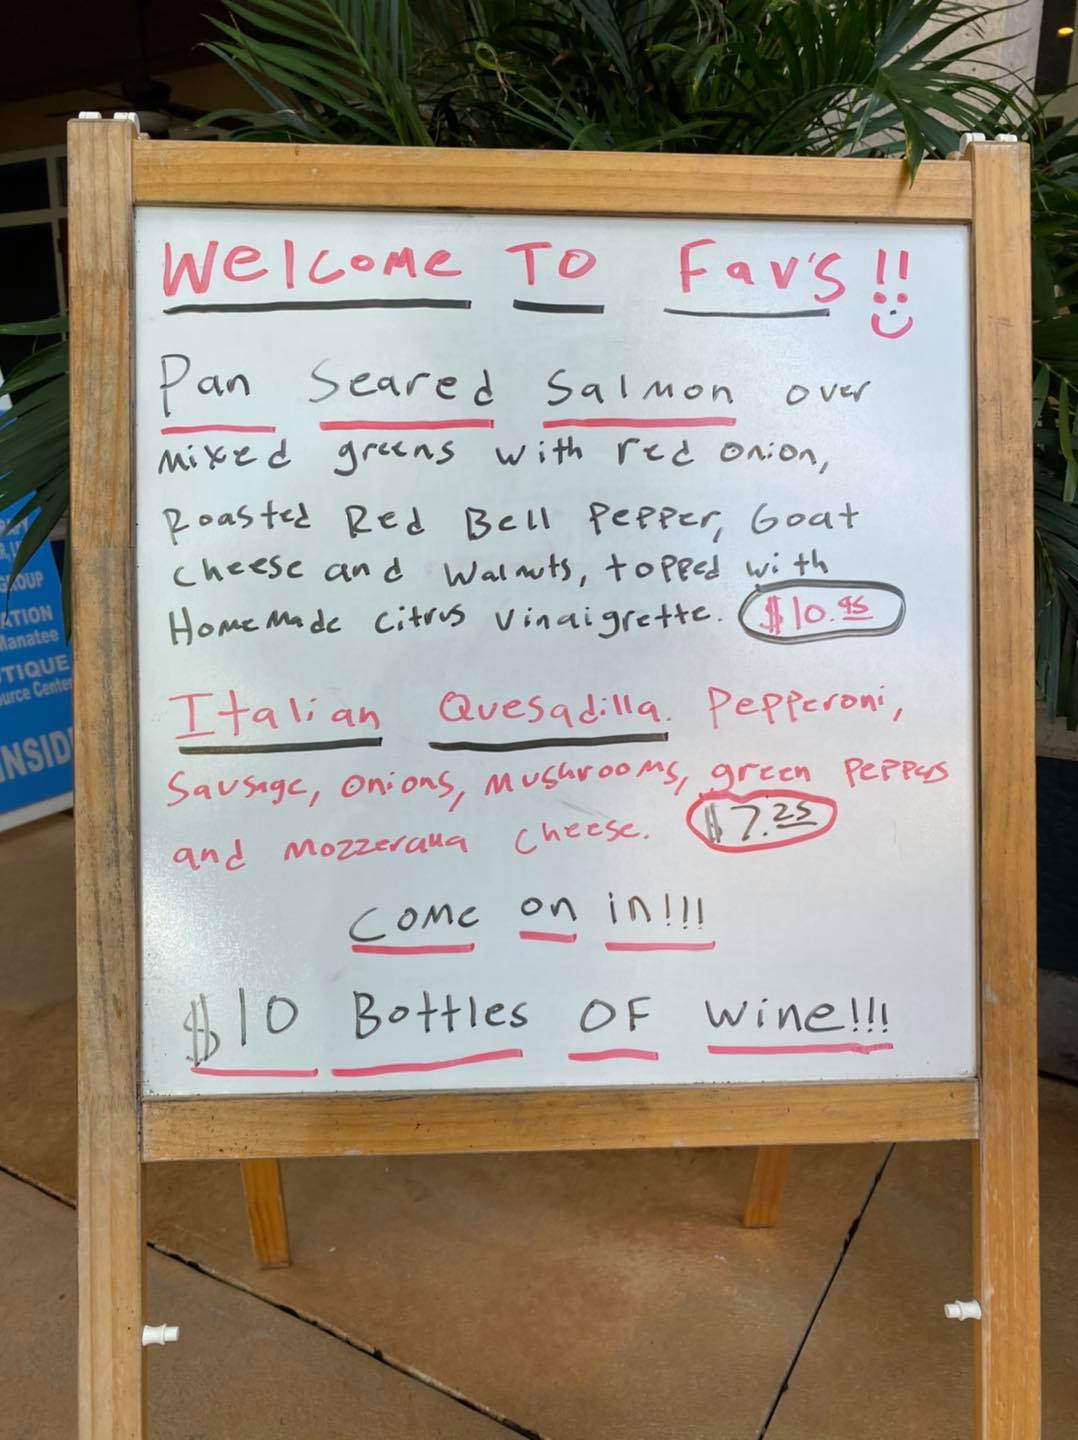 Welcome To Fav's !!
Pan Seared Salmon over
mixed greens with red onion,
Roasted Red Bell Pepper, Goat
cheese and Walnuts, topped with
Homemade citrus vinaigrette. $10.95
Italian Quesadilla. Pepperoni,
Sausage, onions, mushrooms, green peppers
and mozzeralla cheese. $7.25
Come on in!!!
$10 Bottles OF Wine!!!
GROUP
ATION
Manatee
UTIQUE
ource Center
INSID